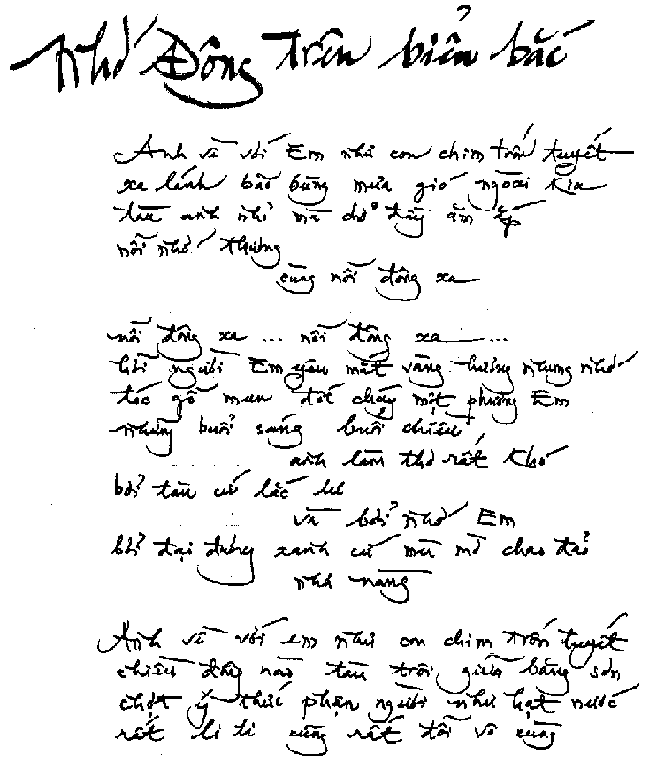 Nhớ Đông trên biển bắc
Anh về với Em như con chim trốn tuyết
xa lánh bão bùng mưa gió ngoài kia
tàu anh nhỉ mà chở đầy ấm áp
nỗi nhớ thương
cùng nỗi đông xa
nỗi đông xa ... nỗi đông xa ...
hỡi người Em yêu mắt vàng hương nhung nhớ
tóc gỗ mun đốt cháy một phương Em
những buổi sáng buổi chiều
anh làm thơ rất khó
bởi tàu cứ lắc lư
và bởi nhớ Em
bởi đại dương xanh cứ mù mờ chao đảo
nhớ nàng
Anh về với em như con chim trốn tuyết
chiều đây nào tàu trôi giữa băng sơn
chợt ý thức phận người như hạt nước
rất li ti cũng rất đỗi vô cùng